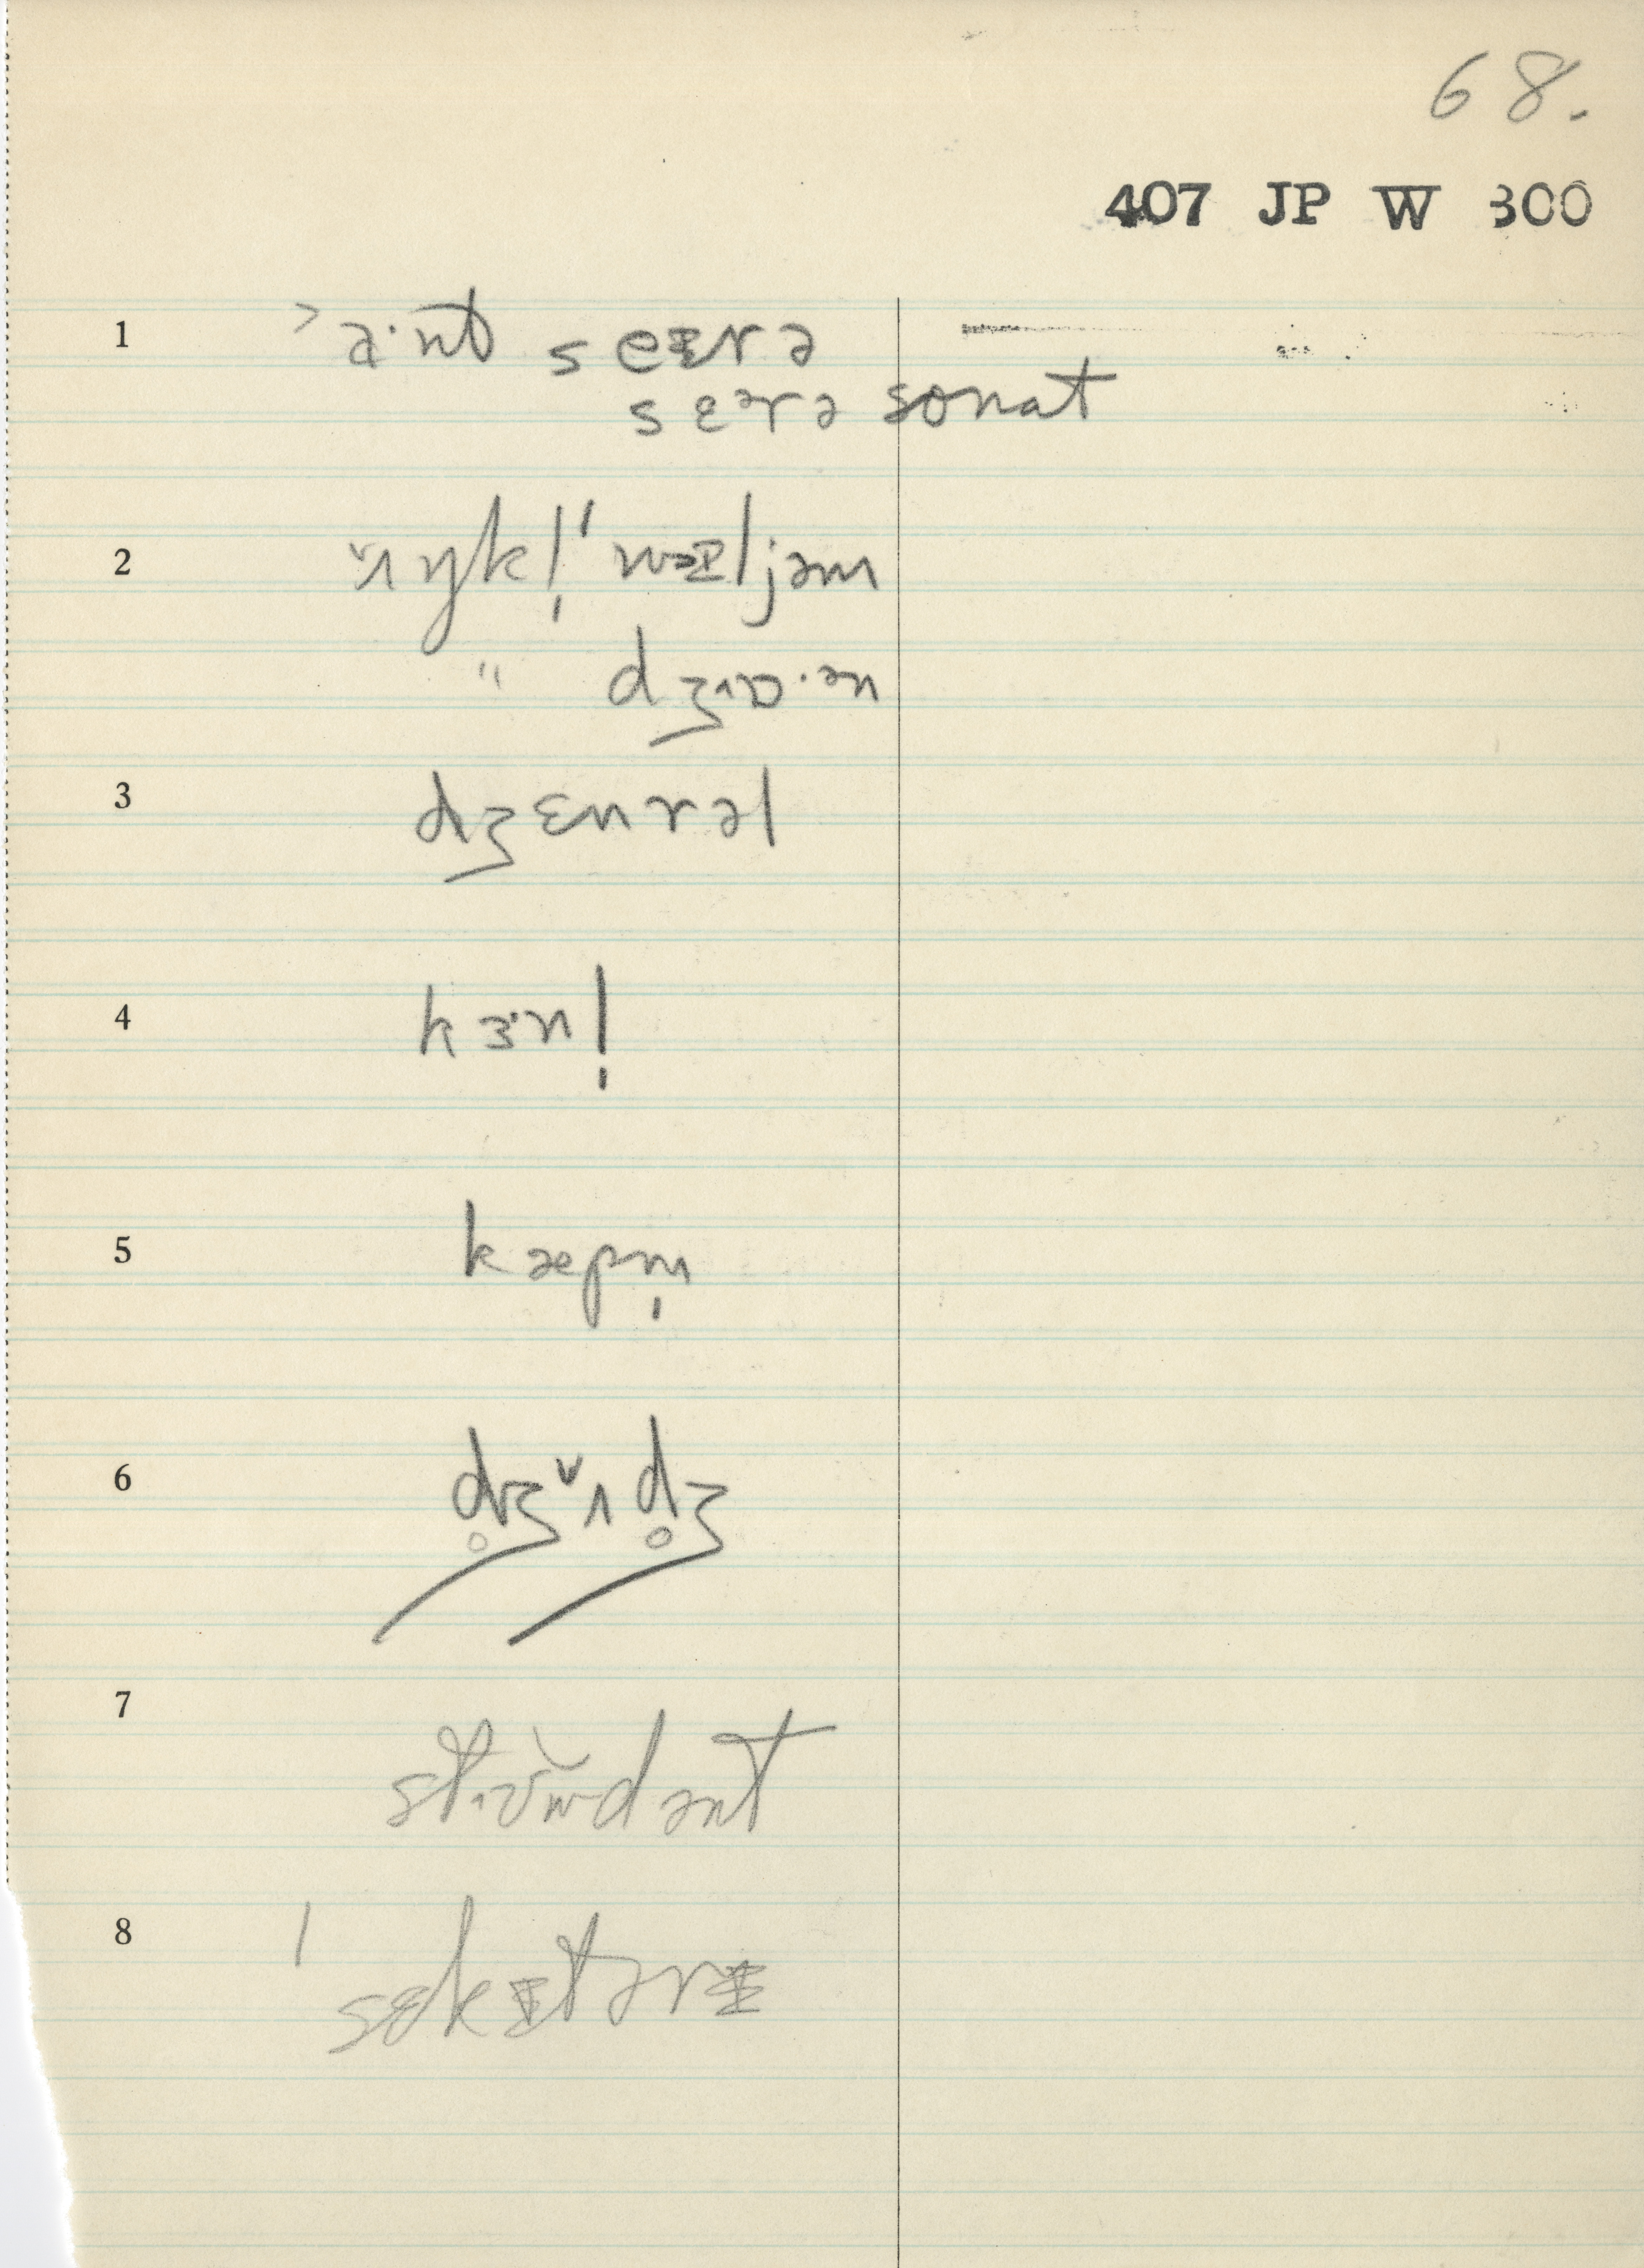 68.
407 JP W 300
1 ˃a·nt seᵻrə
sɛᵊrə sonat
2 ʌ̌ŋkl̩ 'wəᵻljəm
" dʒɒ·ən
3 dʒɛnrəl
4 kɜ·nl̩
5 kæpm̩
6 d̥ʒʌ̌d̥ʒ
7 st dənt
8 ˈsɛkᵻtərᵻ